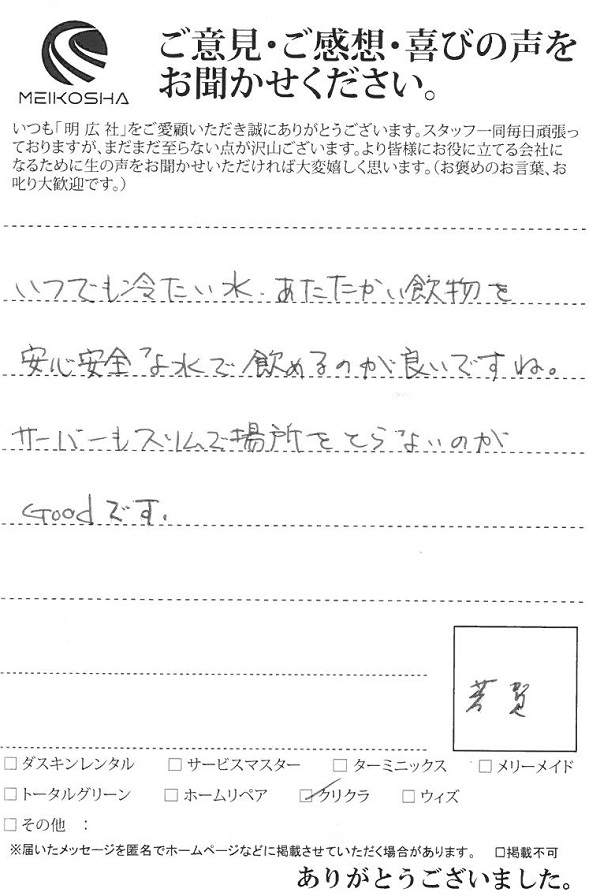 MEIKOSHA
ご意見・ご感想・喜びの声を
お聞かせください。
いつも「明広社」をご愛顧いただき誠にありがとうございます。スタッフ一同毎日頑張っ
ておりますが、まだまだ至らない点が沢山ございます。より皆様にお役に立てる会社に
なるために生の声をお聞かせいただければ大変嬉しく思います。（お褒めのお言葉、お
叱り大歓迎です。）
いつでも冷たい水．あたたかい飲物を
安心安全な水で飲めるのが良いですね。
サーバーもスリムで場所をとらないのが
Goodです．
芳賀
□ダスキンレンタル □サービスマスター □ターミニックス □メリーメイド
□トータルグリーン □ホームリペア ☑クリクラ □ウィズ
□その他 ：
※届いたメッセージを匿名でホームページなどに掲載させていただく場合があります。 □掲載不可
ありがとうございました。